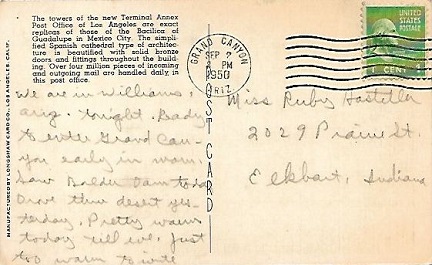 The towers of the new Terminal Annex
Post Office of Los Angeles are exact
replicas of those of the Bacilica of
Guadalupe in Mexico City. The simpli-
fied Spanish cathedral type of architec-
ture is beautified with solid bronze
doors and fittings throughout the build-
ing. Over four million pieces of incoming
and outgoing mail are handled daily, in
this post office.
MANUFACTURED BY LONGSHAW CARD CO., LOS ANGELES, CALIF.
POST CARD
GRAND CANYON
SEP 2
PM
1950
ARIZ.
UNITED STATES
POSTAGE
1 CENT 1
We are in Williams,
ariz. tonight. Ready
to enter Grand Can-
yon early in morn.
Saw Bolder Dam today
Drove thru desert yes-
terday. Pretty warm
today till eve. Just
too warm to write
Miss Ruby Hostetler
2029 Prairie St.
Elkhart, Indiana